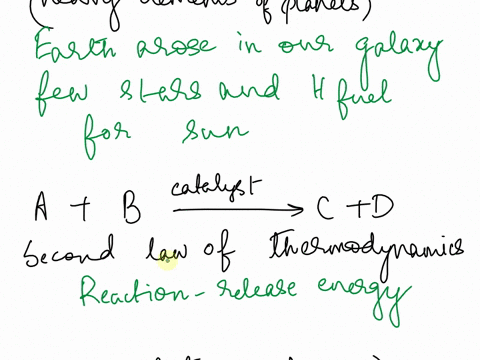 (heavy elements of planets)
Earth arose in our galaxy
few stars and H fuel
for sun
catalyst
A + B → C + D
Second law of thermodynamics
Reaction - release energy